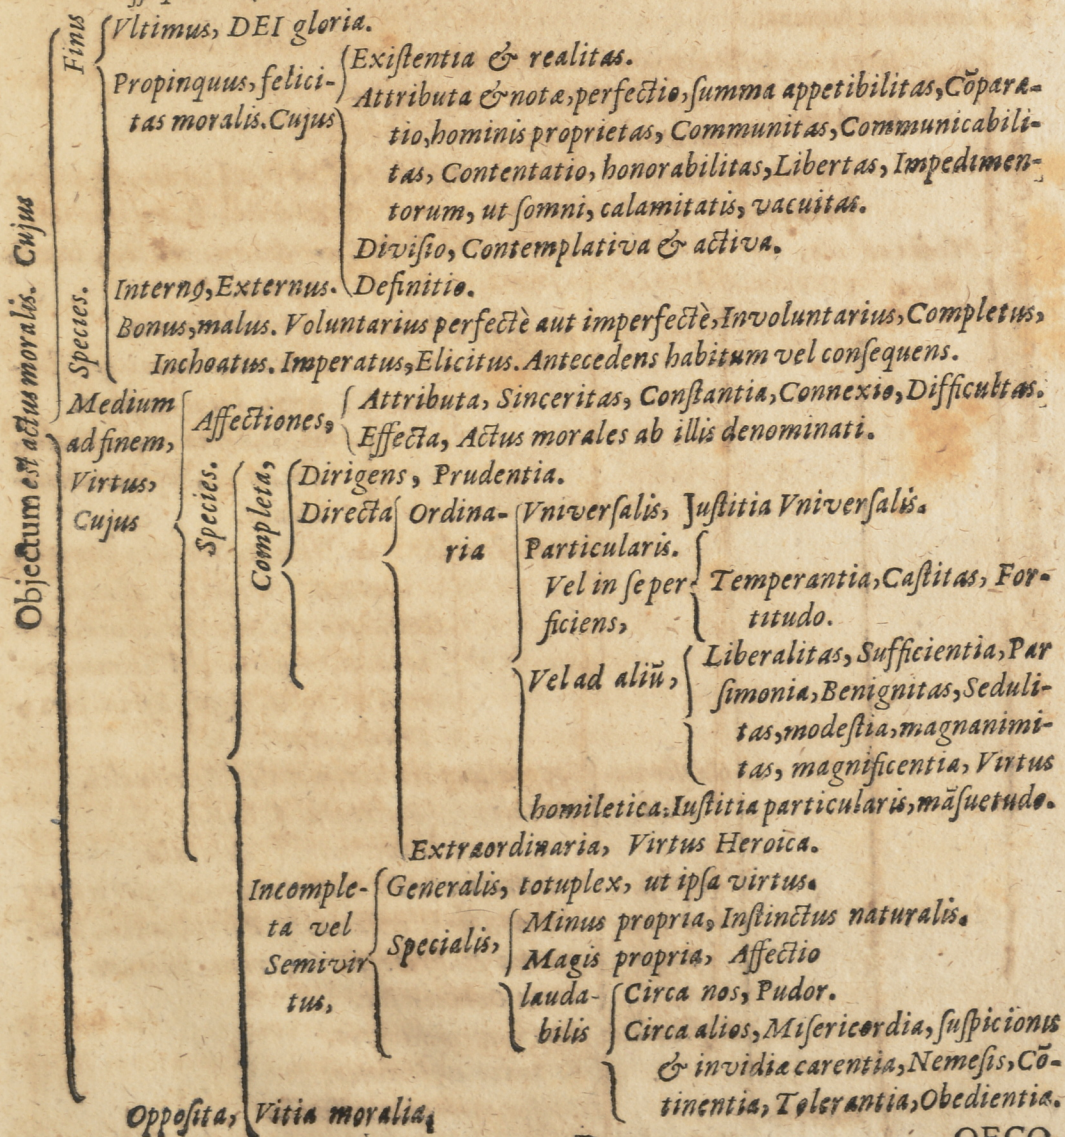 Objectum est actus moralis. Cujus
Finis
Vltimus, DEI gloria.
Propinquus, felici-
tas moralis. Cujus
Existentia & realitas.
Attributa & notæ, perfectio, summa appetibilitas, Cōparæ-
tio, hominis proprietas, Communitas, Communicabili-
tas, Contentatio, honorabilitas, Libertas, Impedimen-
torum, ut somni, calamitatis, vacuitas.
Divisio, Contemplativa & activa.
Definitio.
Species.
Internꝰ, Externus.
Bonus, malus. Voluntarius perfectè aut imperfectè, Involuntarius, Completus,
Inchoatus. Imperatus, Elicitus. Antecedens habitum vel consequens.
Medium
ad finem,
Virtus,
Cujus
Affectiones,
Attributa, Sinceritas, Constantia, Connexio, Difficultas.
Effecta, Actus morales ab illis denominati.
Species.
Completa,
Dirigens, Prudentia.
Directa
Ordina-
ria
Vniversalis, Justitia Vniversalis.
Particularis.
Vel in se per
ficiens,
Temperantia, Castitas, For-
titudo.
Vel ad aliū,
Liberalitas, Sufficientia, Par
simonia, Benignitas, Seduli-
tas, modestia, magnanimi-
tas, magnificentia, Virtus
homiletica. Iustitia particularis, māsuetudo.
Extraordinaria, Virtus Heroica.
Incomple-
ta vel
Semivir
tus,
Generalis, totuplex, ut ipsa virtus.
Specialis,
Minus propria, Instinctus naturalis.
Magis propria, Affectio
lauda-
bilis
Circa nos, Pudor.
Circa alios, Misericordia, suspicionis
& invidiæ carentia, Nemesis, Cō-
tinentia, Tolerantia, Obedientia.
Opposita, Vitia moralia.
OECO